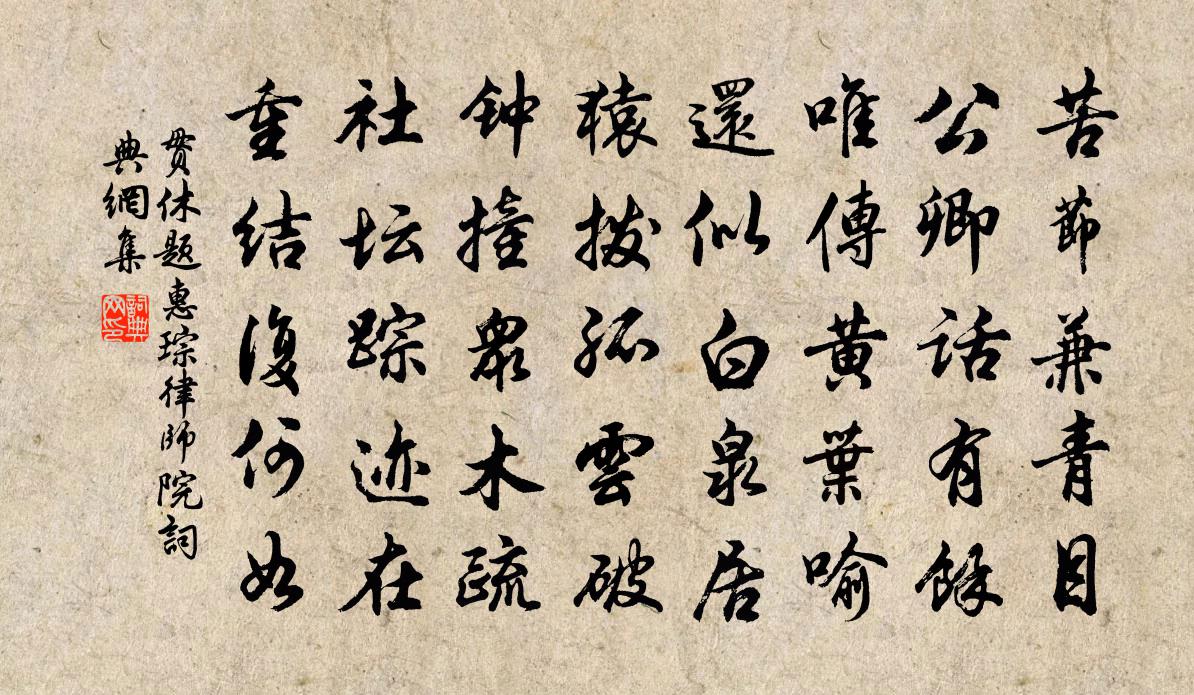 苦節兼青目
公卿話有餘
唯傳黃葉喻
還似白泉居
猿拨孤雲破
钟撞衆木疏
社坛踪迹在
重结復何如
贯休題惠琮律師院詞
典網集
詞典网印